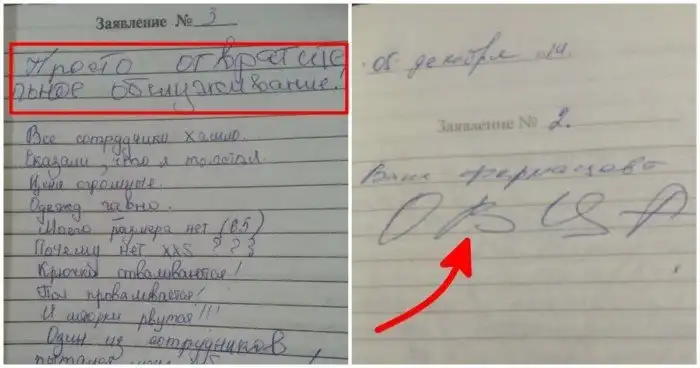 Заявление № 3
Просто отвратите
льное обслуживание!
Все сотрудники хамло.
Сказали, что я толстая.
Цены огромные.
Одежд гавно.
Моего размера нет (65)
Почему нет XXS ???
Крючки отваливаются!
Пол проваливается!
И шторки рвутся!!!
Один из сотрудников,
пытался
05 декабря 14.
Заявление № 2.
Ваш
ОВЦА